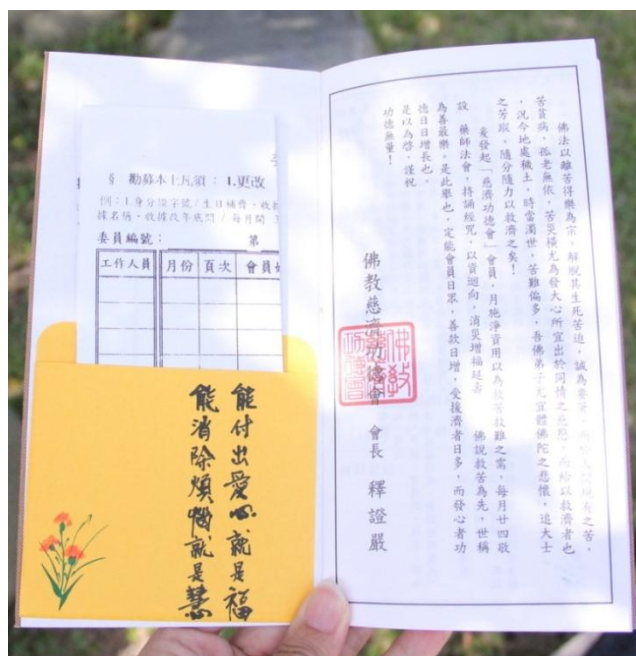 勸募本上瓦須：1.更改
例：1.身分證字號/生日補齊、收
據名稱、收據改年底開/每月開
委員編號： 第
工作人員 月份 頁次 會員
能付出愛心就是福
能消除煩惱就是慧
佛法以離苦得樂為宗，解脫其生死苦迫，誠為要著，
苦貧病，孤老無依，苦災橫尤為發大心所宜出於同情之慈悲，而給以救濟者也
，況今地處穢土，時當濁世，苦難偏多，吾佛弟子尤宜體佛陀之悲懷，追大士
之芳蹤，隨分隨力以救濟之矣！
爰發起「慈濟功德會」會員，月施淨資用以為救苦救難之需，每月廿四敬
設 藥師法會，持誦經咒，以資迴向，消災增福延壽 佛說救苦為先，世稱
為善最樂。是此舉也，定能會員日眾，善款日增，受援濟者日多，而發心者功
德日日增長也。
是以為啓，謹祝
功德無量！
佛教慈濟功德會 會長 釋證嚴